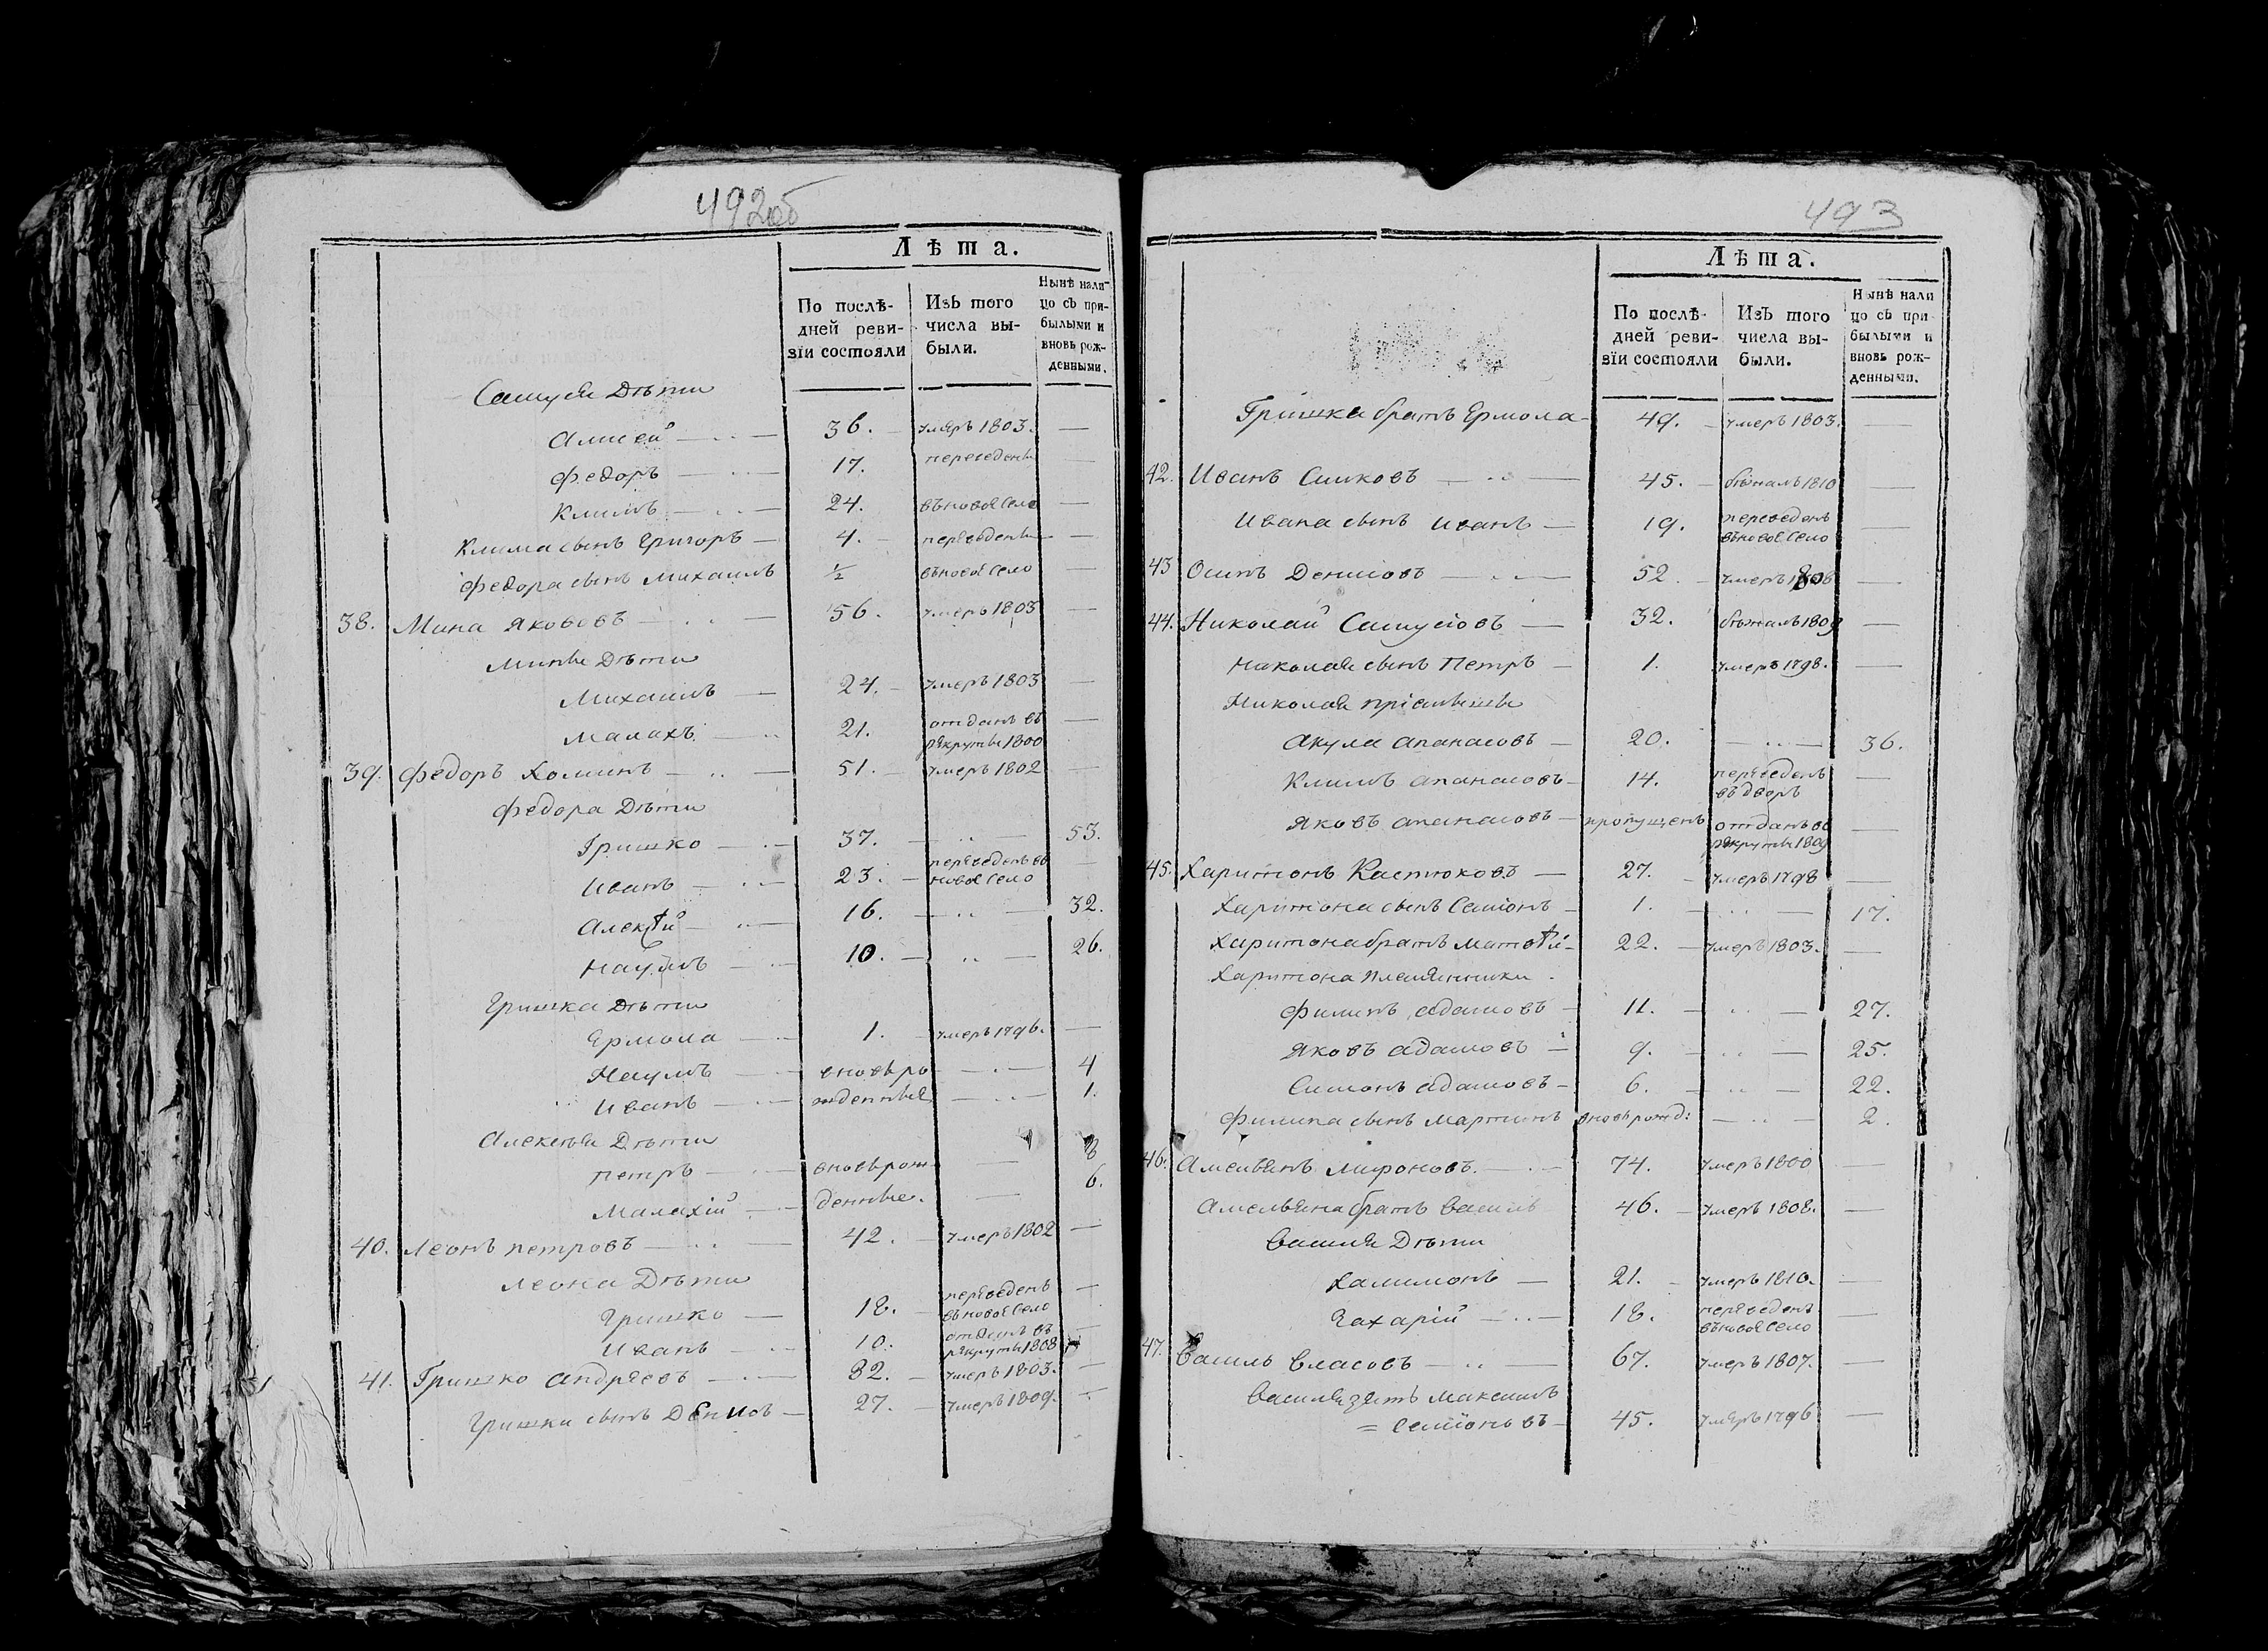 492об
Лѣта.
По послѣ-
дней реви-
зїи состояли
Изъ того
числа вы-
были.
Нынѣ нали-
цо съ при-
былыми и
вновь рож-
денными.
Самуся Дѣти
Алисей 36. умеръ 1803.
Федоръ 17. переведены
Климъ 24. въ новое Село
Клима сынъ Григоръ 4. переведены
Федора сынъ Михаилъ ½ въ новое Село
38. Мина Якововъ 56. умеръ 1803
Мины Дѣти
Михаилъ 24. умеръ 1803
Малахъ 21. отданъ въ
рекруты 1800
39. Федоръ Хоминъ 51. умеръ 1802
Федора Дѣти
Гришко 37. 53.
Иванъ 23. переведенъ въ
новое Село
Алексѣй 16. 32.
Наумъ 10. 26.
Гришка Дѣти
Ермола 1. умеръ 1796.
Наумъ вновь ро 4
Иванъ жденные 1.
Алексѣя Дѣти
Петръ вновь рож 8
Малахій денные. 6.
40. Леонъ Петровъ 42. умеръ 1802
Леона Дѣти
Гришко 18. переведенъ
въ новое Село
Иванъ 10. отданъ въ
рекруты 1808
41. Гришко Андреевъ 82. умеръ 1803.
Гришки сынъ Денисъ 27. умеръ 1809.
493
Лѣта.
По послѣ-
дней реви-
зїи состояли
Изъ того
числа вы-
были.
Нынѣ нали
цо съ при
былыми и
вновь рож-
денными.
Гришка братъ Ермола 49. умеръ 1803.
42. Иванъ Симковъ 45. бѣжалъ 1810
Ивана сынъ Иванъ 19. переведенъ
въ новое Село
43 Осипъ Денисовъ 52. умеръ 1806
44. Николай Самусіовъ 32. бѣжалъ 1809
Николая сынъ Петръ 1. умеръ 1798.
Николая пріемыши
Акула Апанасовъ 20. 36.
Климъ Апанасовъ 14. переведенъ
въ дворъ
Яковъ Апанасовъ пропущенъ отданъ въ
рекруты 1809
45. Харитонъ Кастюковъ 27. умеръ 1798
Харитона сынъ Саміонъ 1. 17.
Харитона братъ Матвѣй 22. умеръ 1803.
Харитона племянники
Филипъ Адамовъ 11. 27.
Яковъ Адамовъ 9. 25.
Симонъ Адамовъ 6. 22.
Филипа сынъ Мартинъ вновь рожд: 2.
46. Амельянъ Мироновъ 74. умеръ 1800
Амельяна братъ Василь 46. умеръ 1808.
Василя Дѣти
Халимонъ 21. умеръ 1810.
Захарій 18. переведенъ
въ новое Село
47. Василь Власовъ 67. умеръ 1807.
Василя зять Максимъ
= Семіоновъ 45. умеръ 1796